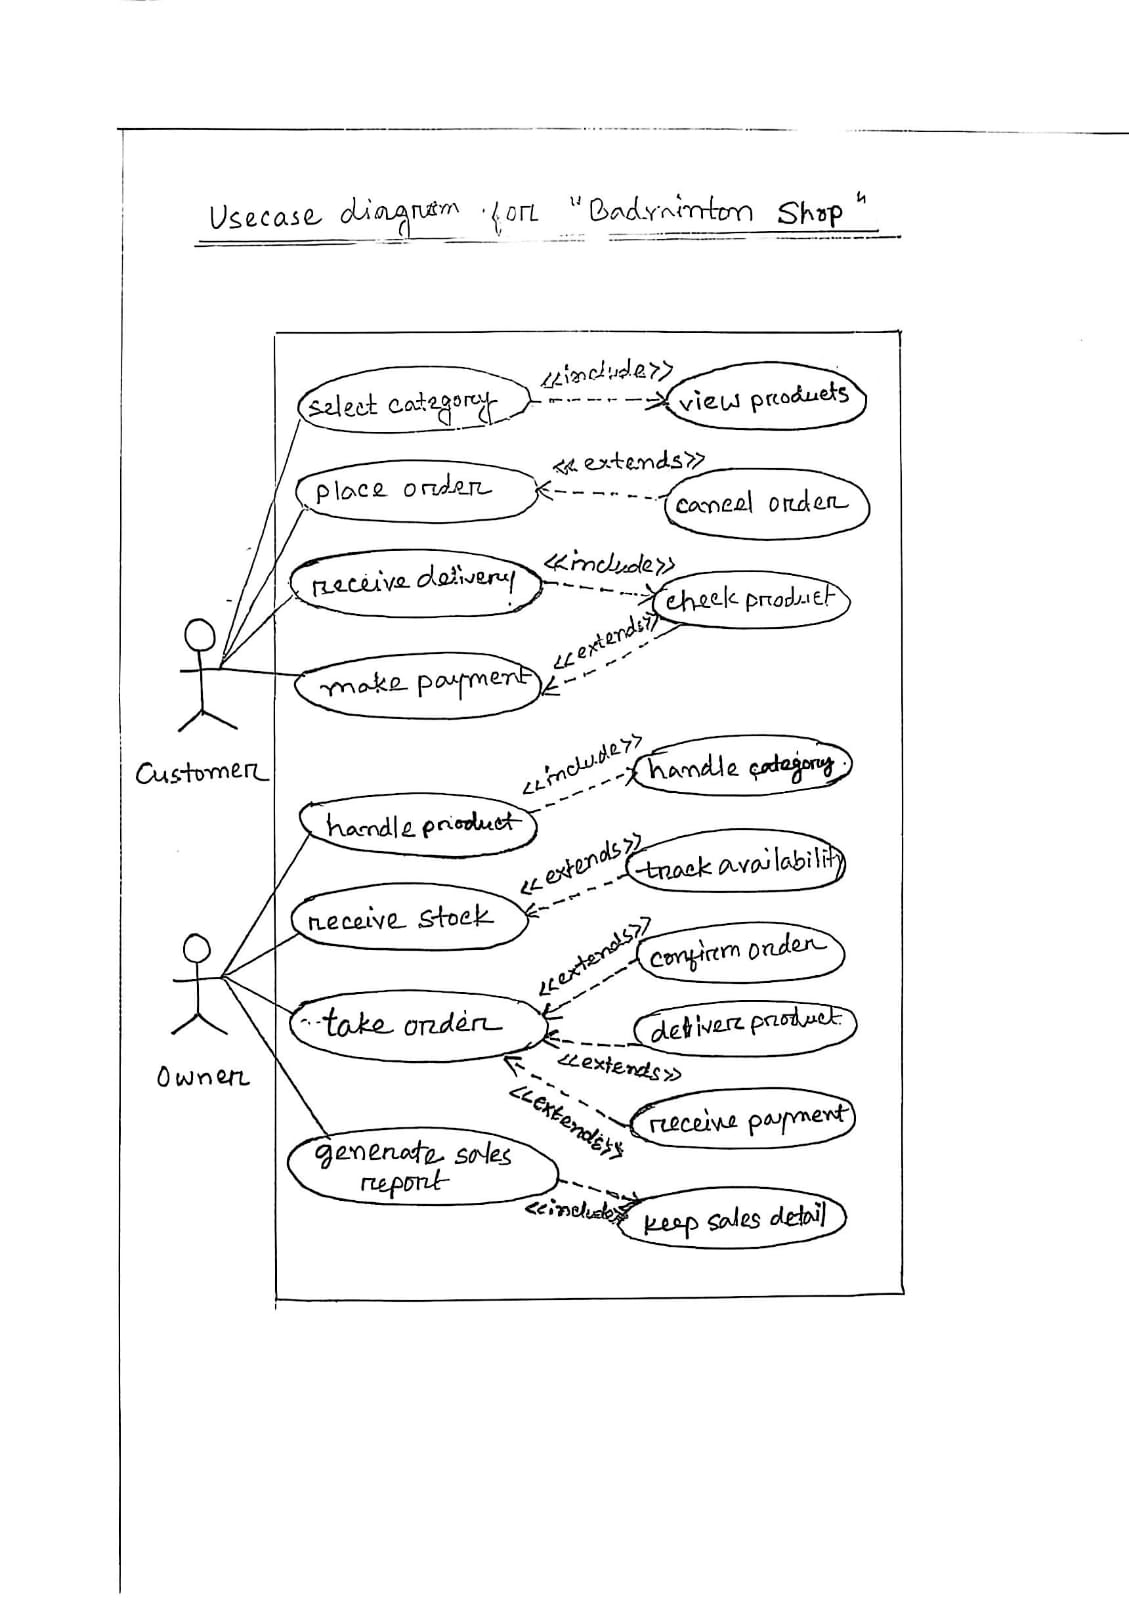 Usecase diagram for "Badminton Shop"
<<include>>
select category
view products
<<extends>>
place order
cancel order
<<include>>
receive delivery
check product
<<extends>>
make payment
Customer
<<include>>
handle category
handle product
<<extends>>
track availability
receive stock
<<extends>>
confirm order
take order
deliver product
<<extends>>
Owner
<<extends>>
receive payment
generate sales
report
<<include>>
keep sales detail